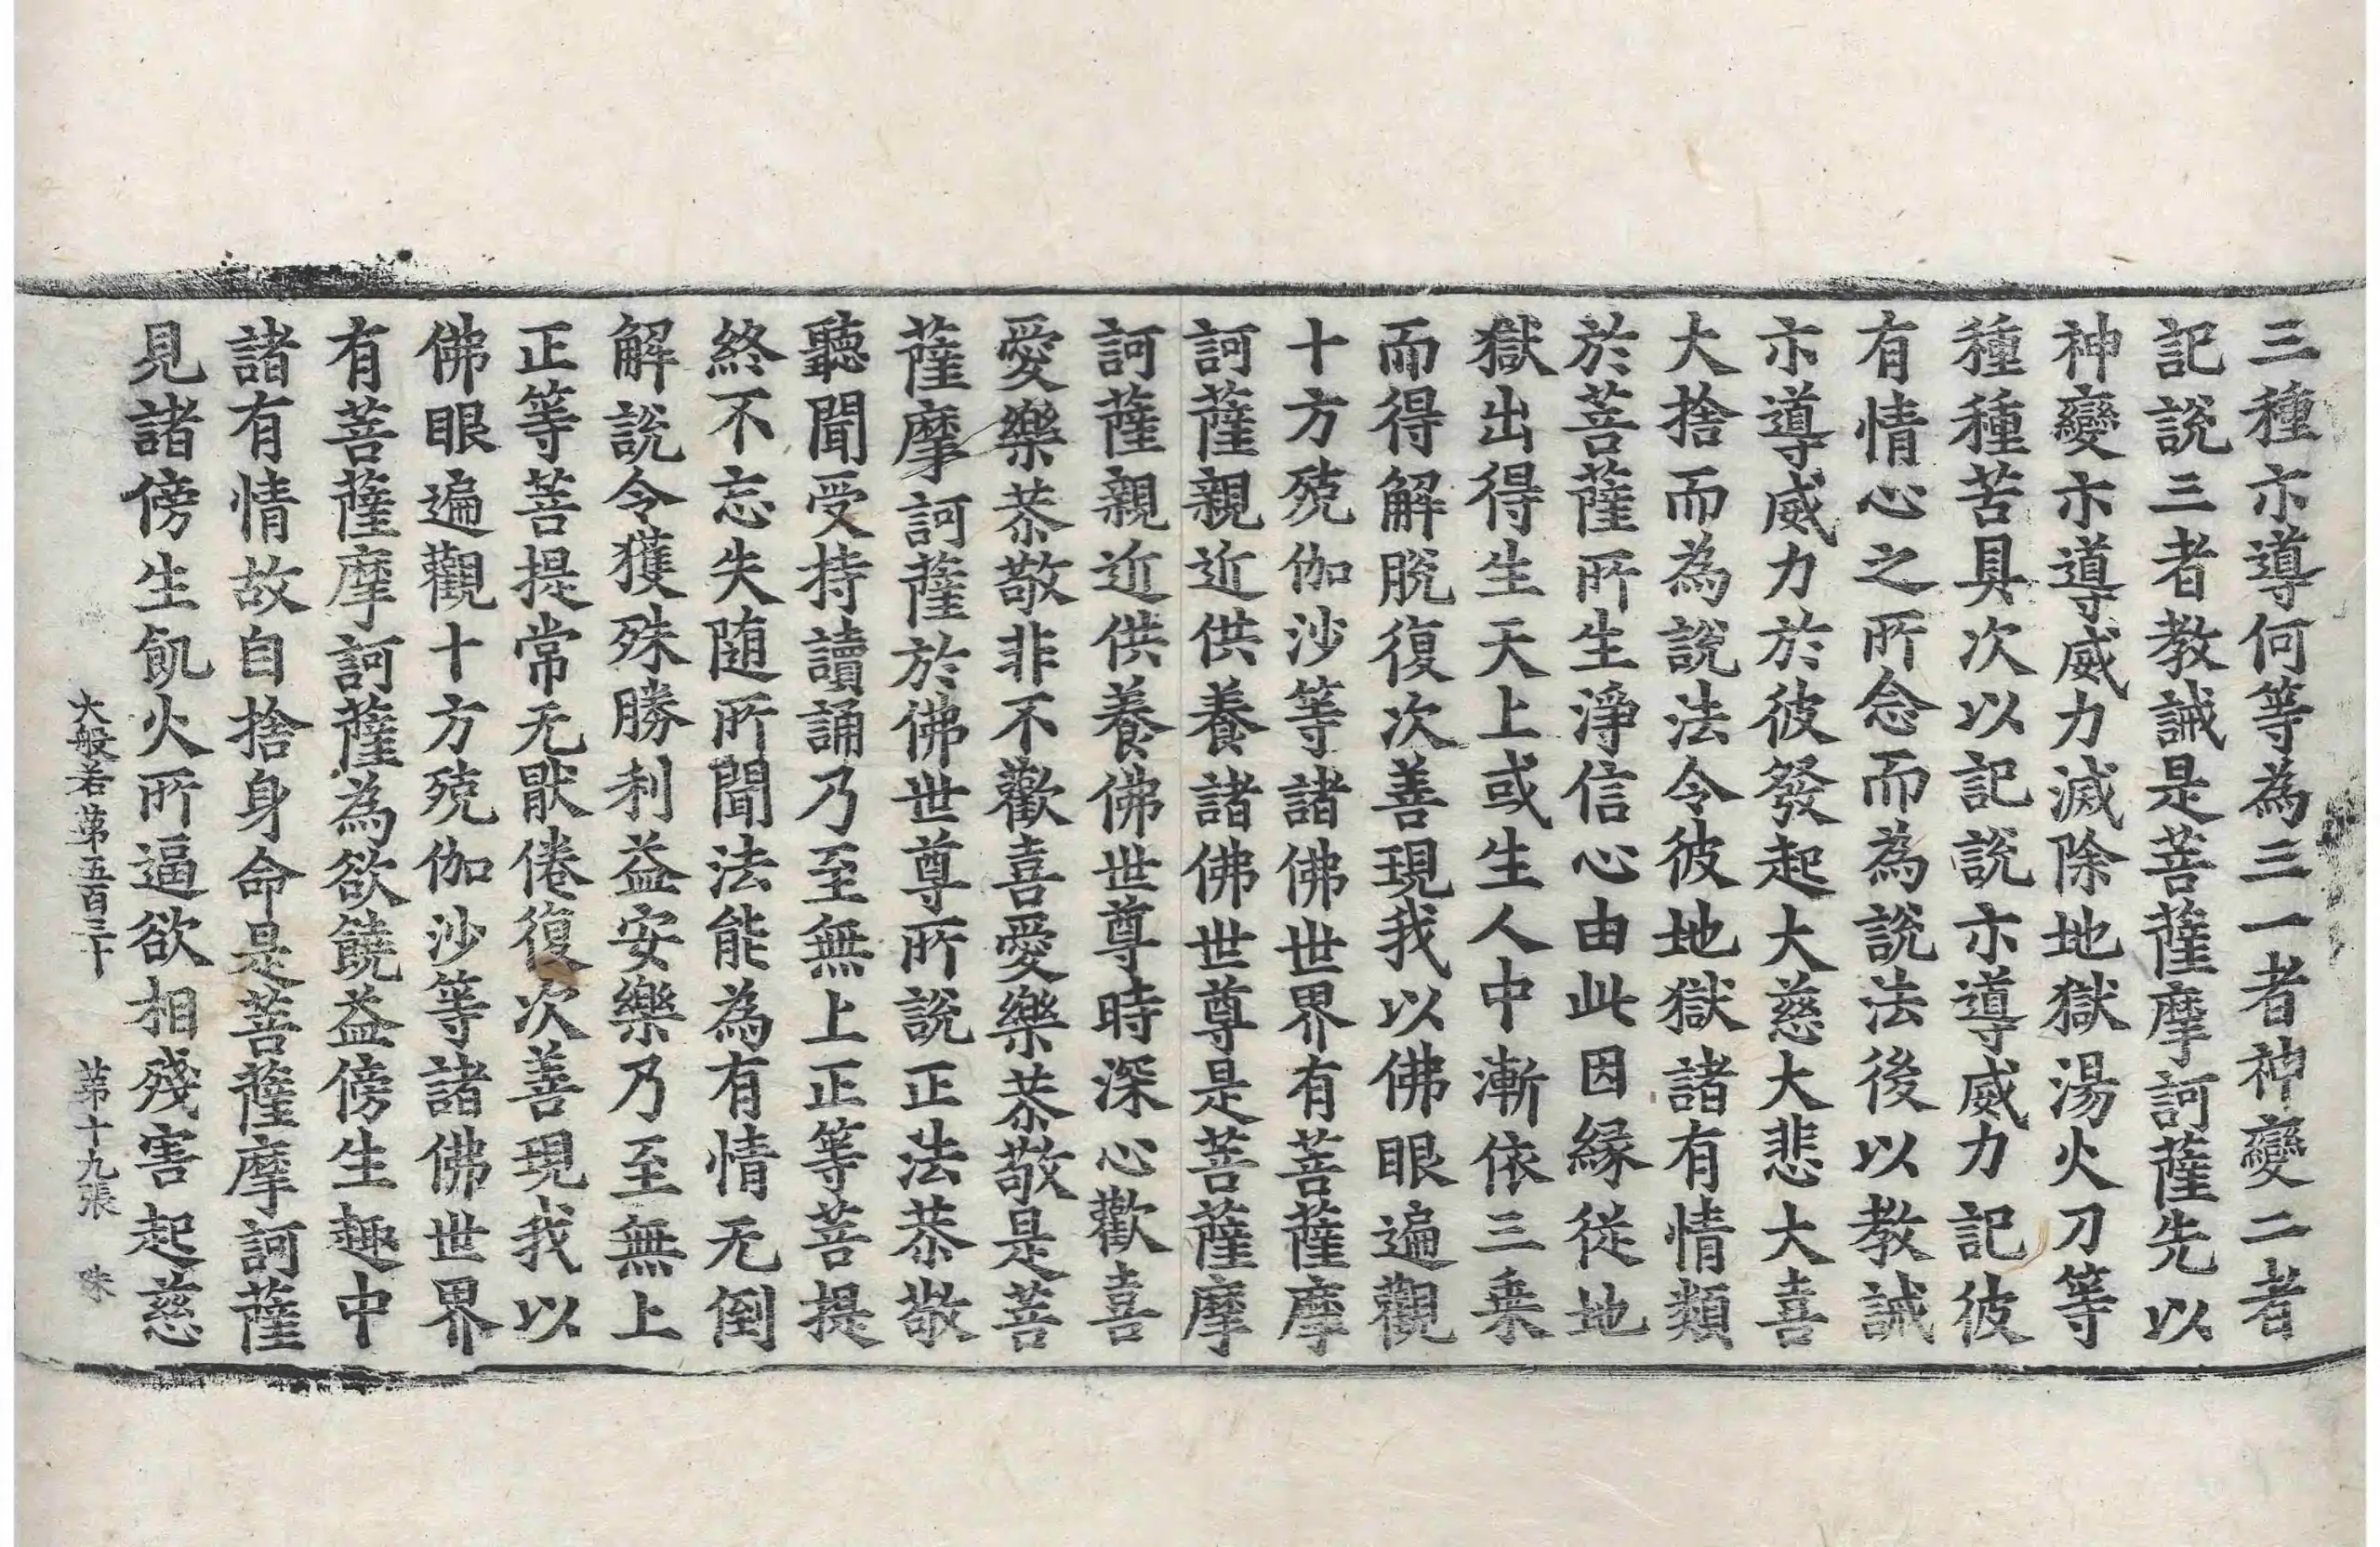 三種示導何等為三一者神變二者
記說三者教誡是菩薩摩訶薩先以
神變示導威力滅除地獄湯火刀等
種種苦具次以記說示導威力記彼
有情心之所念而為說法後以教誡
示導威力於彼發起大慈大悲大喜
大捨而為說法令彼地獄諸有情類
於菩薩所生淨信心由此因緣從地
獄出得生天上或生人中漸依三乗
而得解脫復次善現我以佛眼遍觀
十方殑伽沙等諸佛世界有菩薩摩
訶薩親近供養諸佛世尊是菩薩摩
訶薩親近供養佛世尊時深心歡喜
愛樂恭敬非不歡喜愛樂恭敬是菩
薩摩訶薩於佛世尊所說正法恭敬
聽聞受持讀誦乃至無上正等菩提
終不忘失随所聞法能為有情无倒
解說令獲殊勝利益安樂乃至無上
正等菩提常无猒倦復次善現我以
佛眼遍觀十方殑伽沙等諸佛世界
有菩薩摩訶薩為欲饒益傍生趣中
諸有情故自捨身命是菩薩摩訶薩
見諸傍生飢火所逼欲相殘害起慈
大般若第五百三十 第十九張 珠